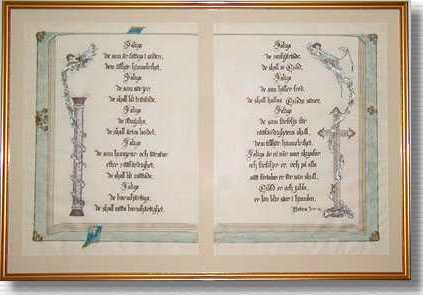 Saliga
de som är fattiga i anden,
dem tillhör himmelriket.
Saliga
de som sörjer,
de skall bli tröstade.
Saliga
de ödmjuka,
de skall ärva landet.
Saliga
de som hungrar och törstar
efter rättfärdigheten,
de skall bli mättade.
Saliga
de barmhärtiga,
de skall möta barmhärtighet.
Saliga
de renhjärtade,
de skall se Gud.
Saliga
de som håller fred,
de skall kallas Guds söner.
Saliga
de som förföljs för
rättfärdighetens skull,
dem tillhör himmelriket.
Saliga är ni när man skymfar
och förföljer er och på alla
sätt förtalar er för min skull.
Gläd er och jubla,
er lön blir stor i himlen.